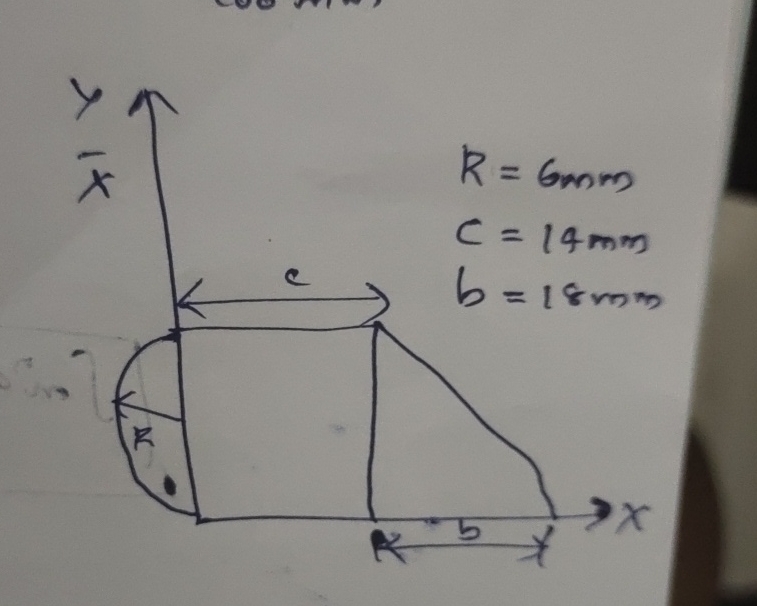 Y
x̄
R = 6mm
C = 14mm
b = 18mm
c
R
b
X